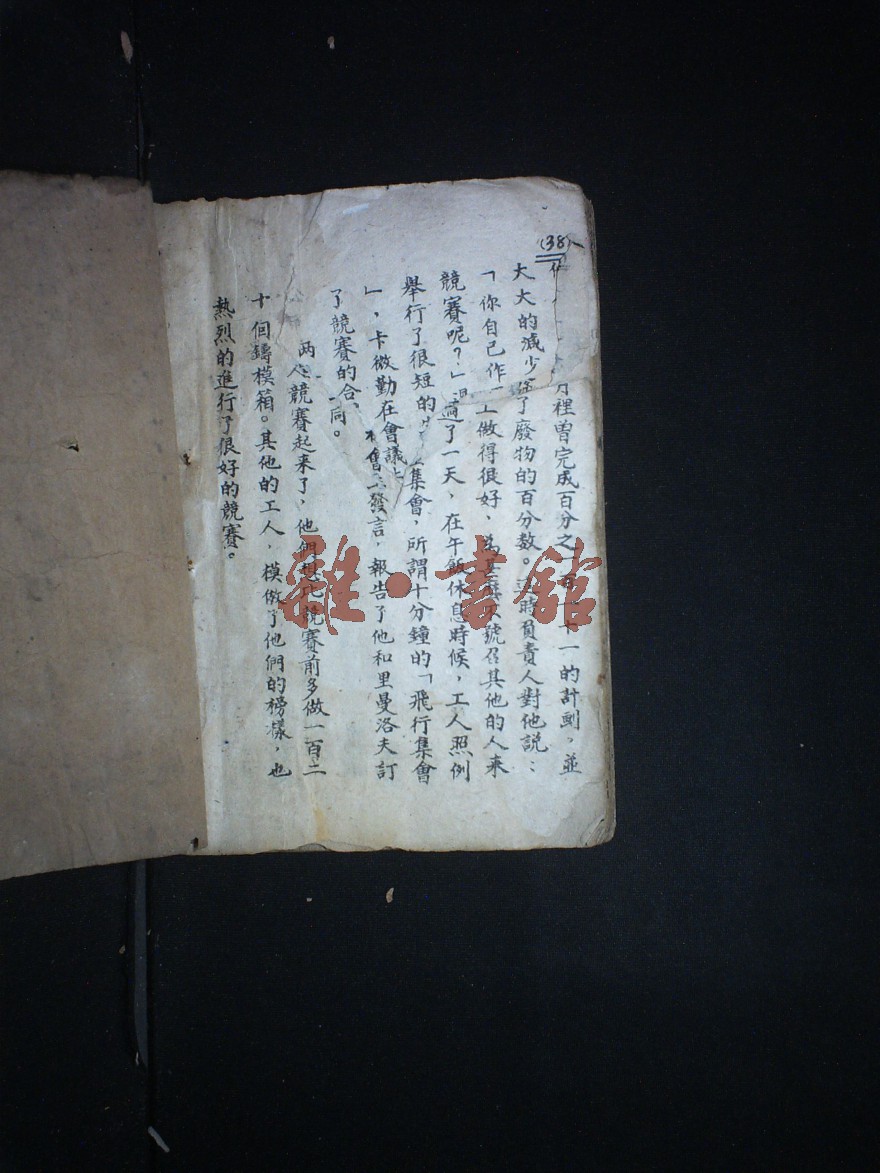 (38)
月裡曾完成百分之一百一十一的計劃,並
大大的減少了廢物的百分数。時負責人對他説:
「你自己作工做得很好,為甚不號召其他的人来
競賽呢?」過了一天,在午飯休息時候,工人照例
舉行了很短的集會,所謂十分鐘的「飛行集會
」,卡微勤在會議上發言,報告了他和里曼洛夫訂
了競賽的合同。
两人競賽起来了,他們想比競賽前多做一百二
十個鑄模箱。其他的工人,模倣了他們的榜樣,也
熱烈的進行了很好的競賽。
雜·書館